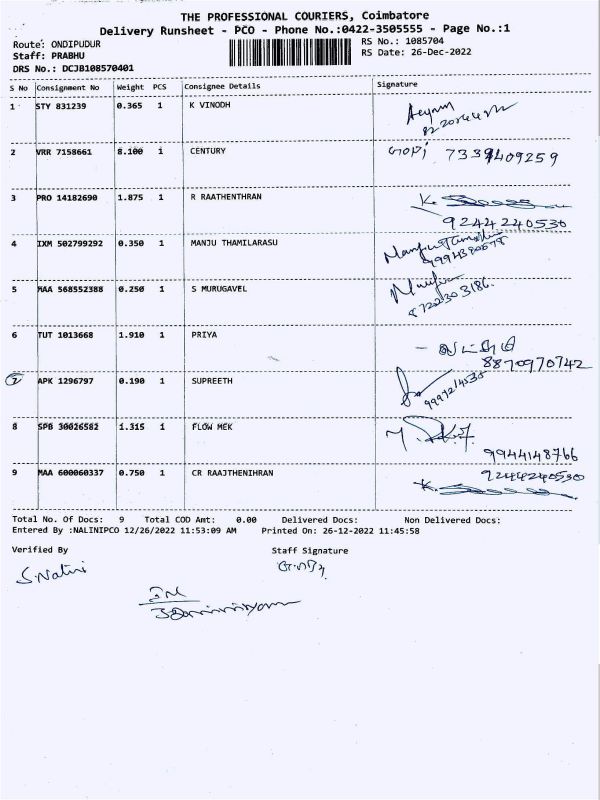 THE PROFESSIONAL COURIERS, Coimbatore
Delivery Runsheet - PCO - Phone No.:0422-3505555 - Page No.:1
Route: ONDIPUDUR
RS No.: 1085704
Staff: PRABHU
RS Date: 26-Dec-2022
DRS No.: DCJB108570401
S No Consignment No Weight PCS Consignee Details Signature
1 STY 831239 0.365 1 K VINODH
2 VRR 7158661 8.100 1 CENTURY 7339409259
3 PRO 14182690 1.875 1 R RAATHENTHRAN K.
9244240530
4 IXM 502799292 0.350 1 MANJU THAMILARASU
5 MAA 568552388 0.250 1 S MURUGAVEL
8722303186.
6 TUT 1013668 1.910 1 PRIYA
8870970742
7 APK 1296797 0.190 1 SUPREETH
8 SPB 30026582 1.315 1 FLOW MEK
9944148766
9 MAA 600060337 0.750 1 CR RAAJTHENIHRAN 9244240530
K.
Total No. Of Docs: 9 Total COD Amt: 0.00 Delivered Docs: Non Delivered Docs:
Entered By :NALINIPCO 12/26/2022 11:53:09 AM Printed On: 26-12-2022 11:45:58
Verified By Staff Signature
S.Nalini